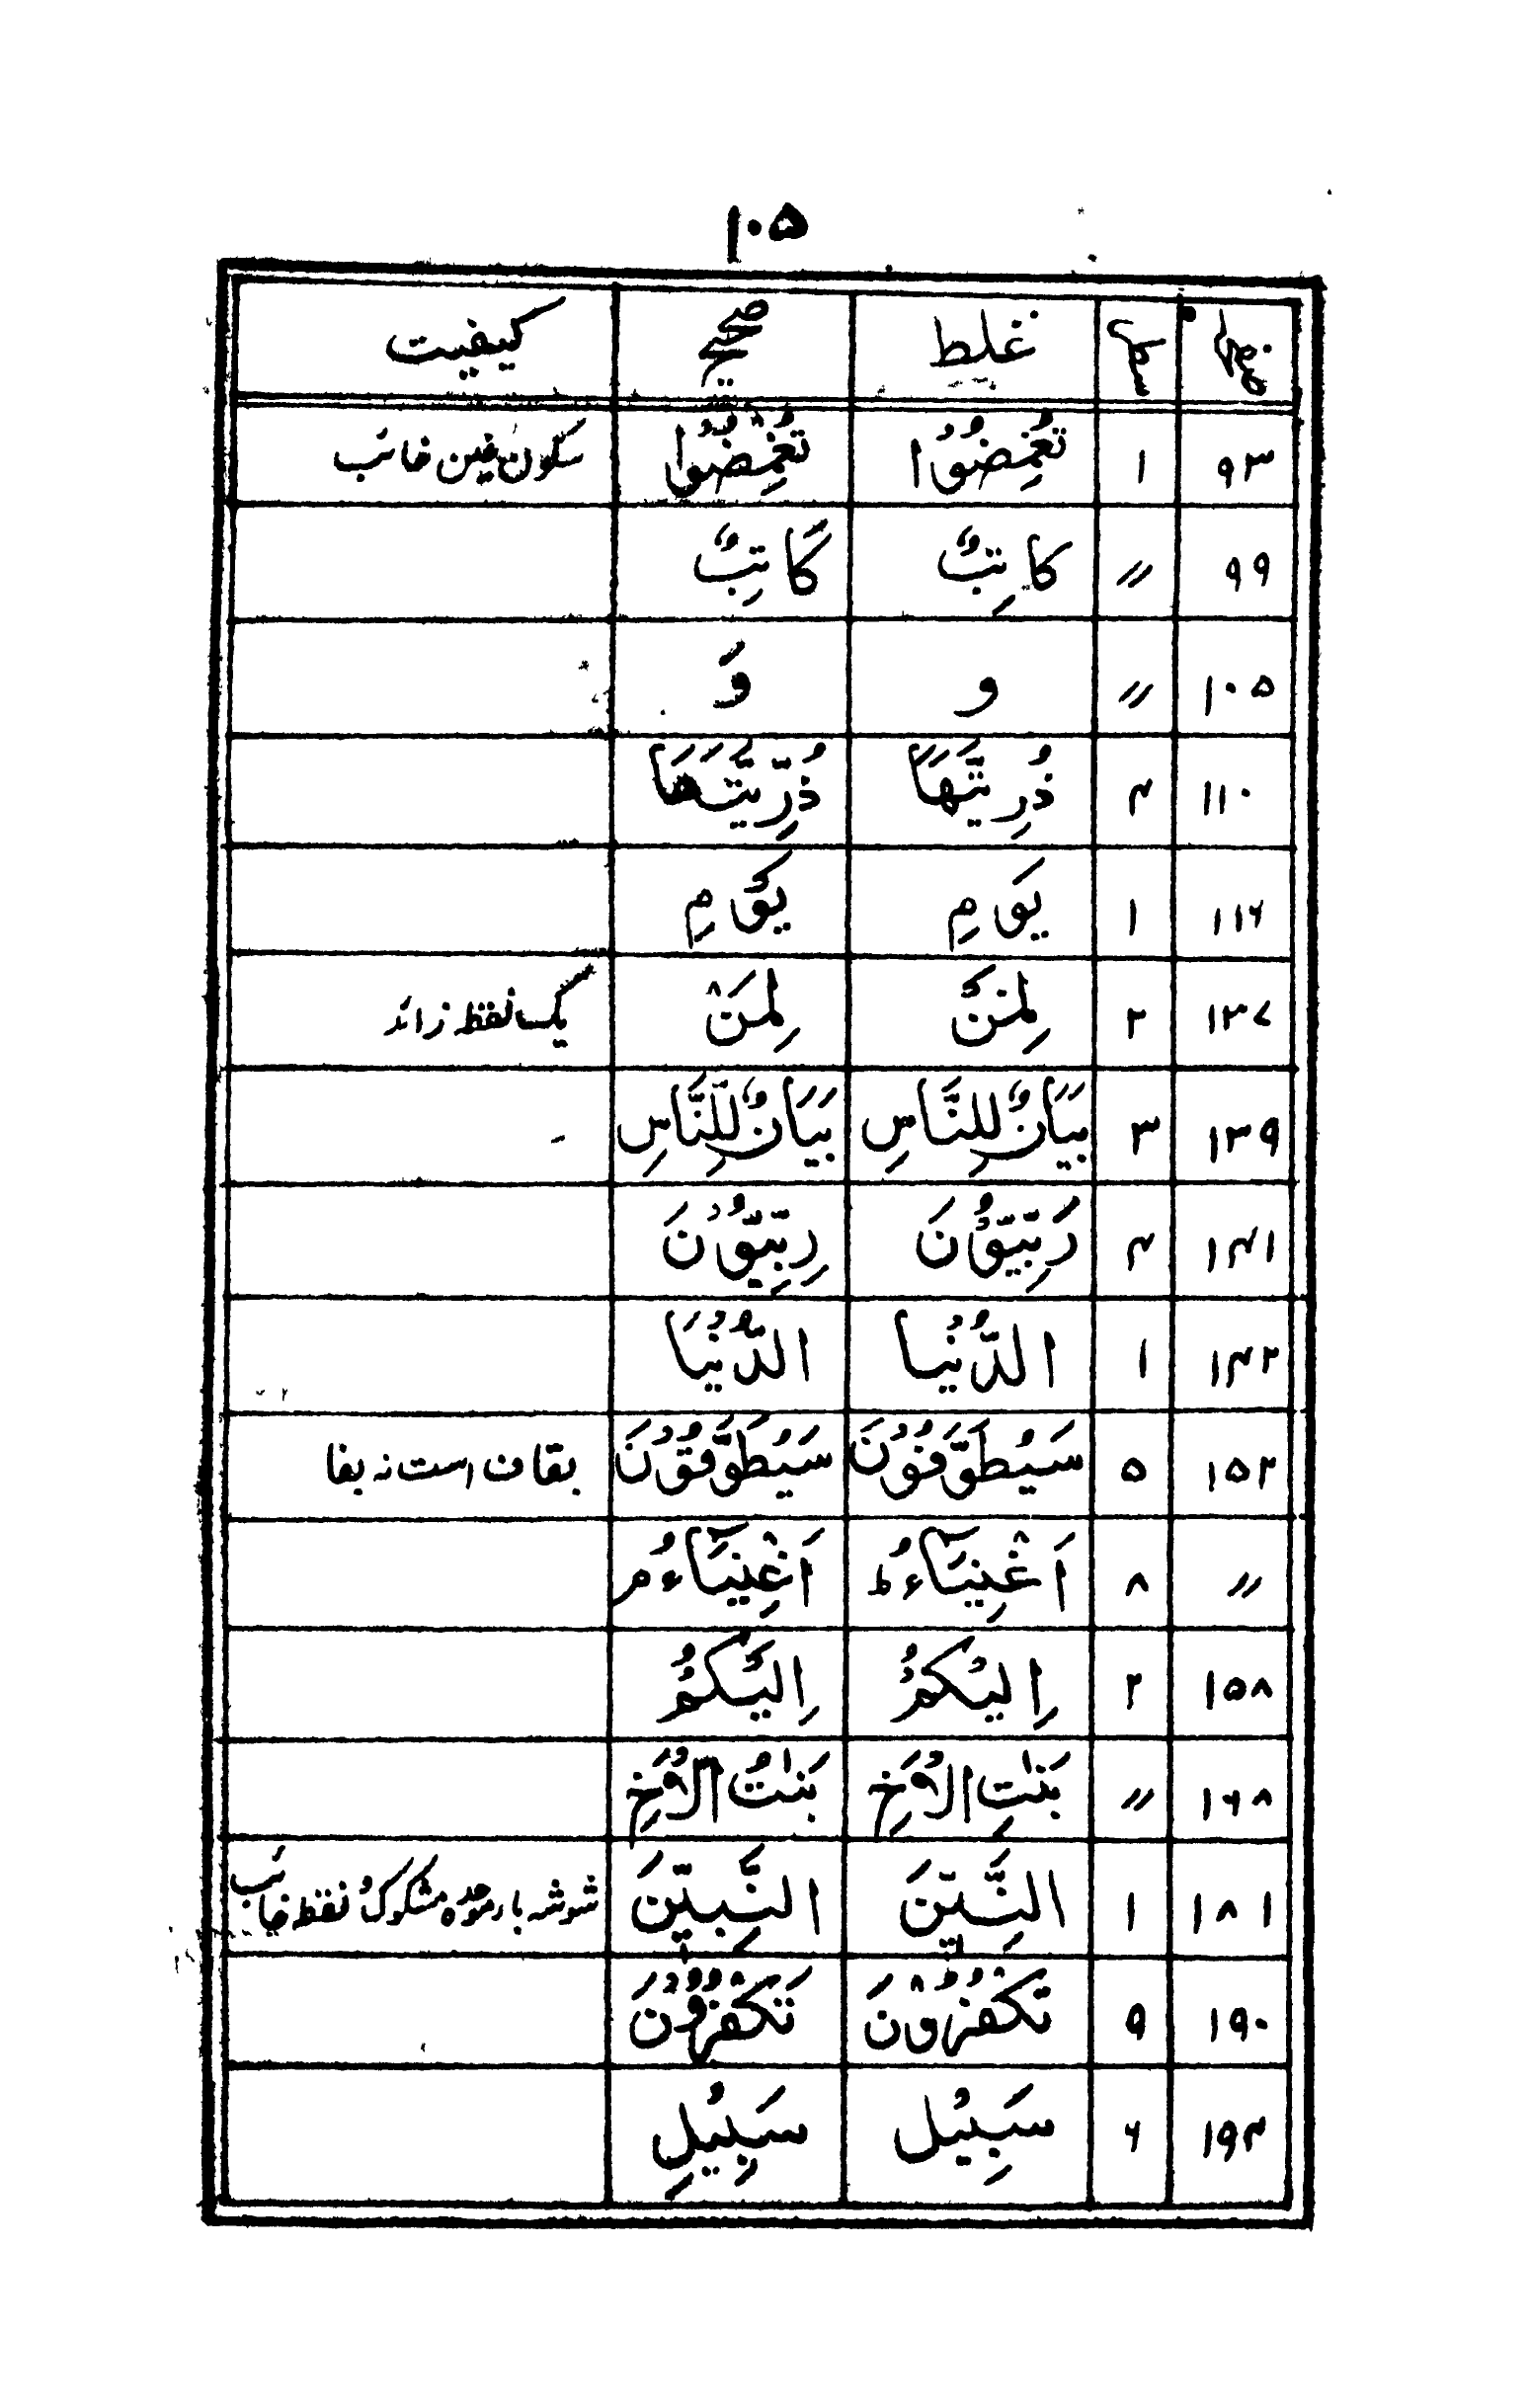 ۱۰۵
صفحہ سطر غلط صحیح کیفیت
۹۳ ۱ تُغْمِضُوْا تُغْمِضُوْا سکون غین غائب
۹۹ // کَاتِبٌ کَاتِبٌ
۱۰۵ // و وَ
۱۱۰ ۴ ذُرِیَّتَهَا ذُرِّیَّتَهَا
۱۱۶ ۱ یَوْمِ یَوْمِ
۱۳۷ ۲ لِمَنْ لِمَنْ یک نقطہ زائد
۱۳۹ ۳ بَیَانٌ لِلنَّاسِ بَیَانٌ لِّلنَّاسِ
۱۴۱ ۴ رَبِّیُّوْنَ رِبِّیُّوْنَ
۱۴۲ ۱ الدُّنْیا الدُّنْیَا
۱۵۲ ۵ سَیُطَوَّفُوْنَ سَیُطَوَّقُوْنَ بقاف است نہ بفا
// ۸ اَغْنِیَآءُ ط اَغْنِیَآءُ م
۱۵۸ ۲ اِلیْکُمْ اِلَیْکُمْ
۱۶۸ // بَنٰتِ الْاَخِ بَنٰتُ الْاَخِ
۱۸۱ ۱ النَّبِیّٖنَ النَّبِیّٖنَ شوشہ باء موحدہ مشکوک نقطہ غائب
۱۹۰ ۹ تکْفُرُوْنَ تَکْفُرُوْنَ
۱۹۴ ۶ سَبِیْل سَبِیْلِ